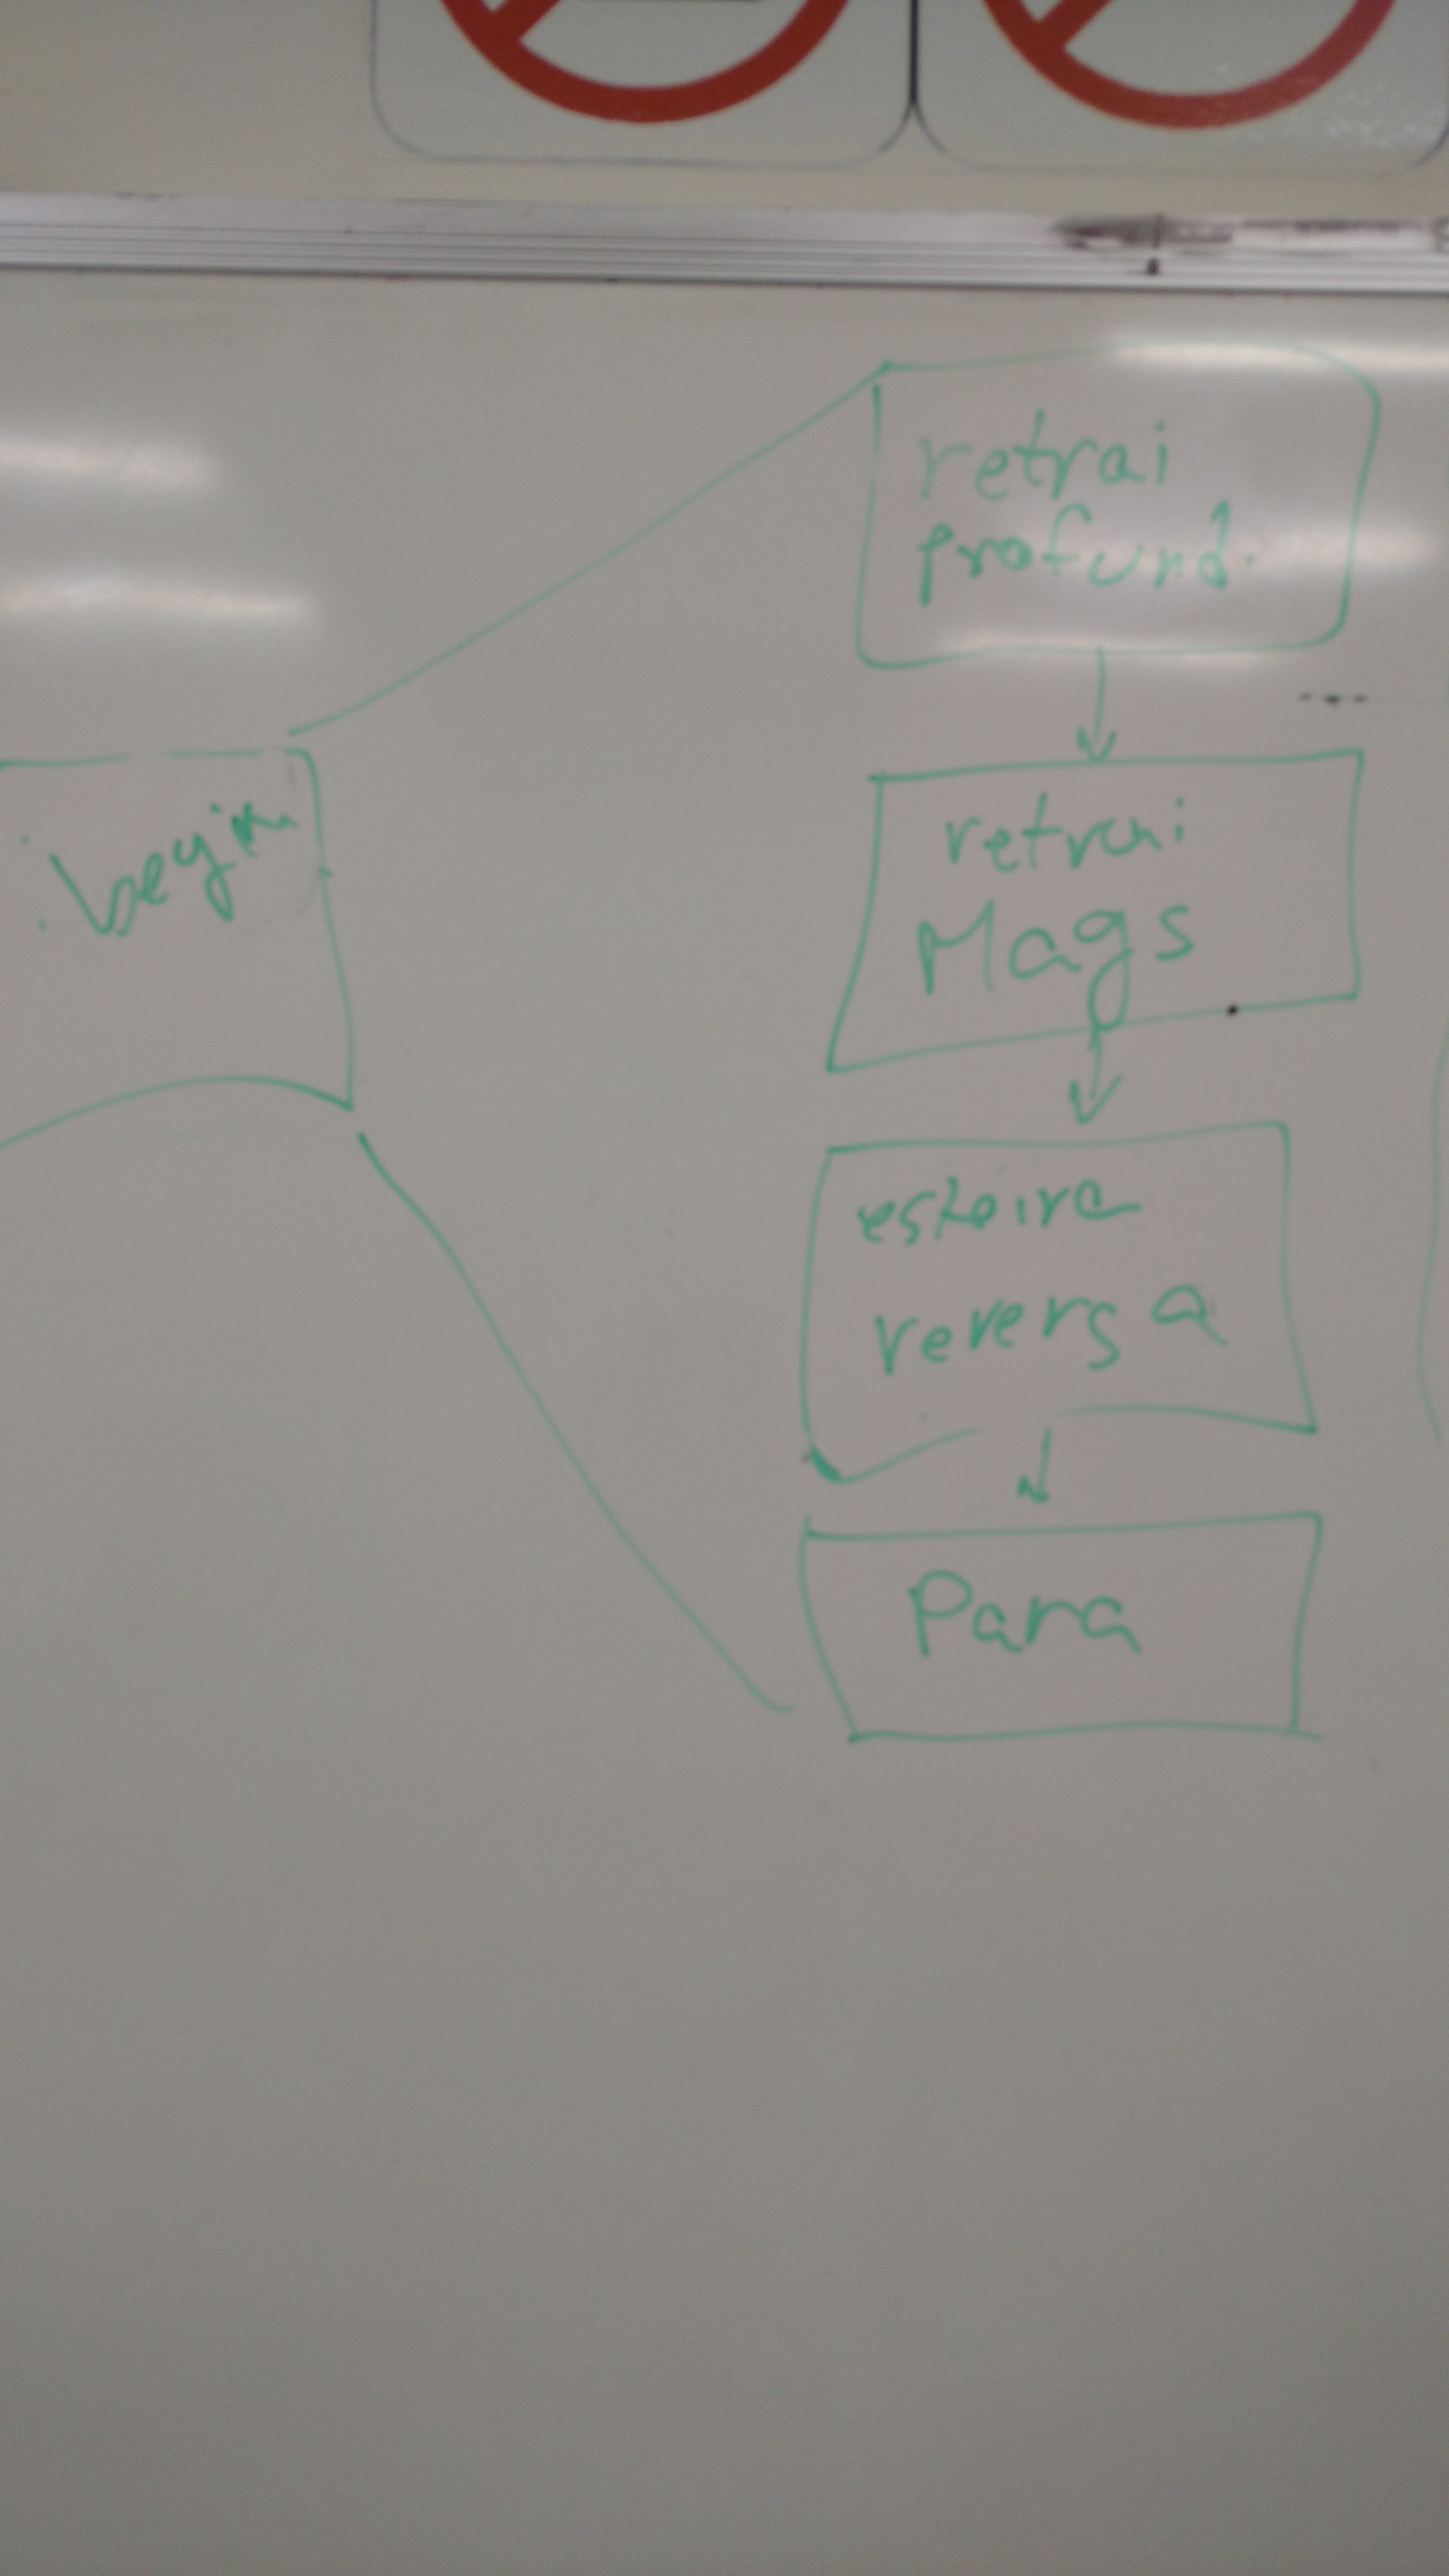 begin
retrai
profund.
retrai
Mags
esteira
reversa
Para